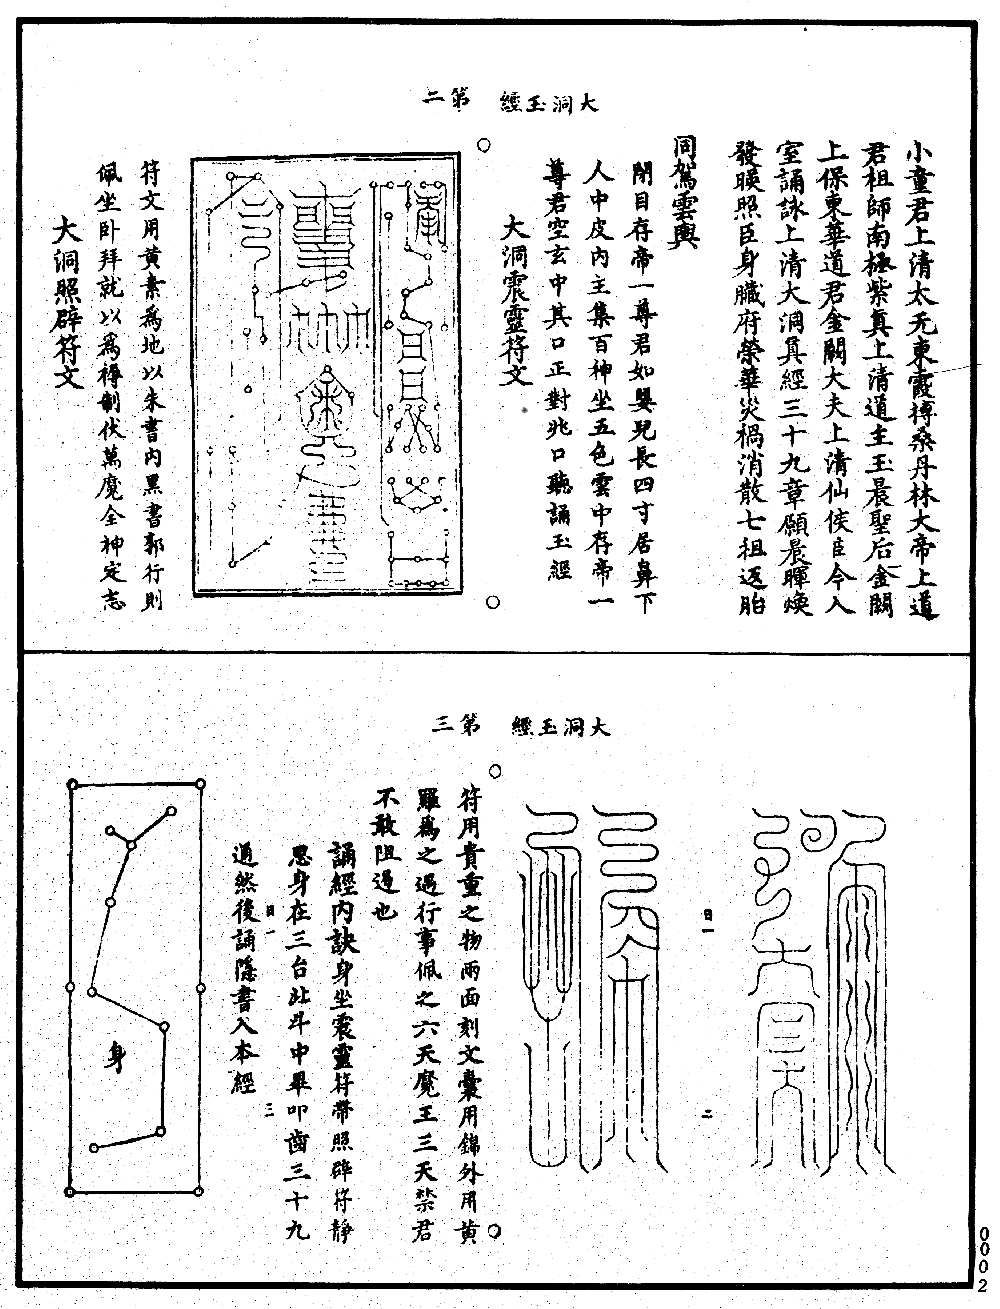 小童君上清太无東霞搏桑丹林大帝上道
君祖師南極紫真上清道主玉晨聖后金闕
上保東華道君金闕大夫上清仙侯臣今入
室誦詠上清大洞真經三十九章願晨暉煥
發暎照臣身臟府榮華災禍消散七祖返胎
同駕雲輿
閉目存帝一尊君如嬰兒長四寸居鼻下
人中皮內主集百神坐五色雲中存帝一
尊君空玄中其口正對兆口聽誦玉經
大洞震靈符文
大洞玉經 第二
符文用黃素為地以朱書內黑書郭行則
佩坐卧拜就以為褥制伏萬魔全神定志
大洞照辟符文
日一
二
大洞玉經 第三
符用貴重之物兩面刻文囊用錦外用黄
羅為之遇行事佩之六天魔王三天禁君
不敢阻過也
誦經內訣身坐震靈符帶照辟符靜
思身在三台北斗中畢叩齒三十九
通然後誦隱書入本經
日一
三
身
0002